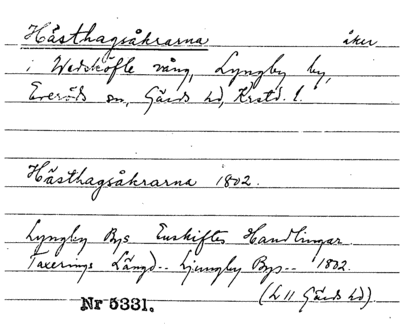 Hästhagsåkrarna åker
i Wedsköfle vång, Lyngby by,
Everöds sn, Gärds hd, Krstd. l.
Hästhagsåkrarna 1802.
Lyngby Bys Enskiftes Handlingar
Taxerings Längd.. Ljungby Bys.. 1802.
(L 11 Gärds hd)
Nr 5331.